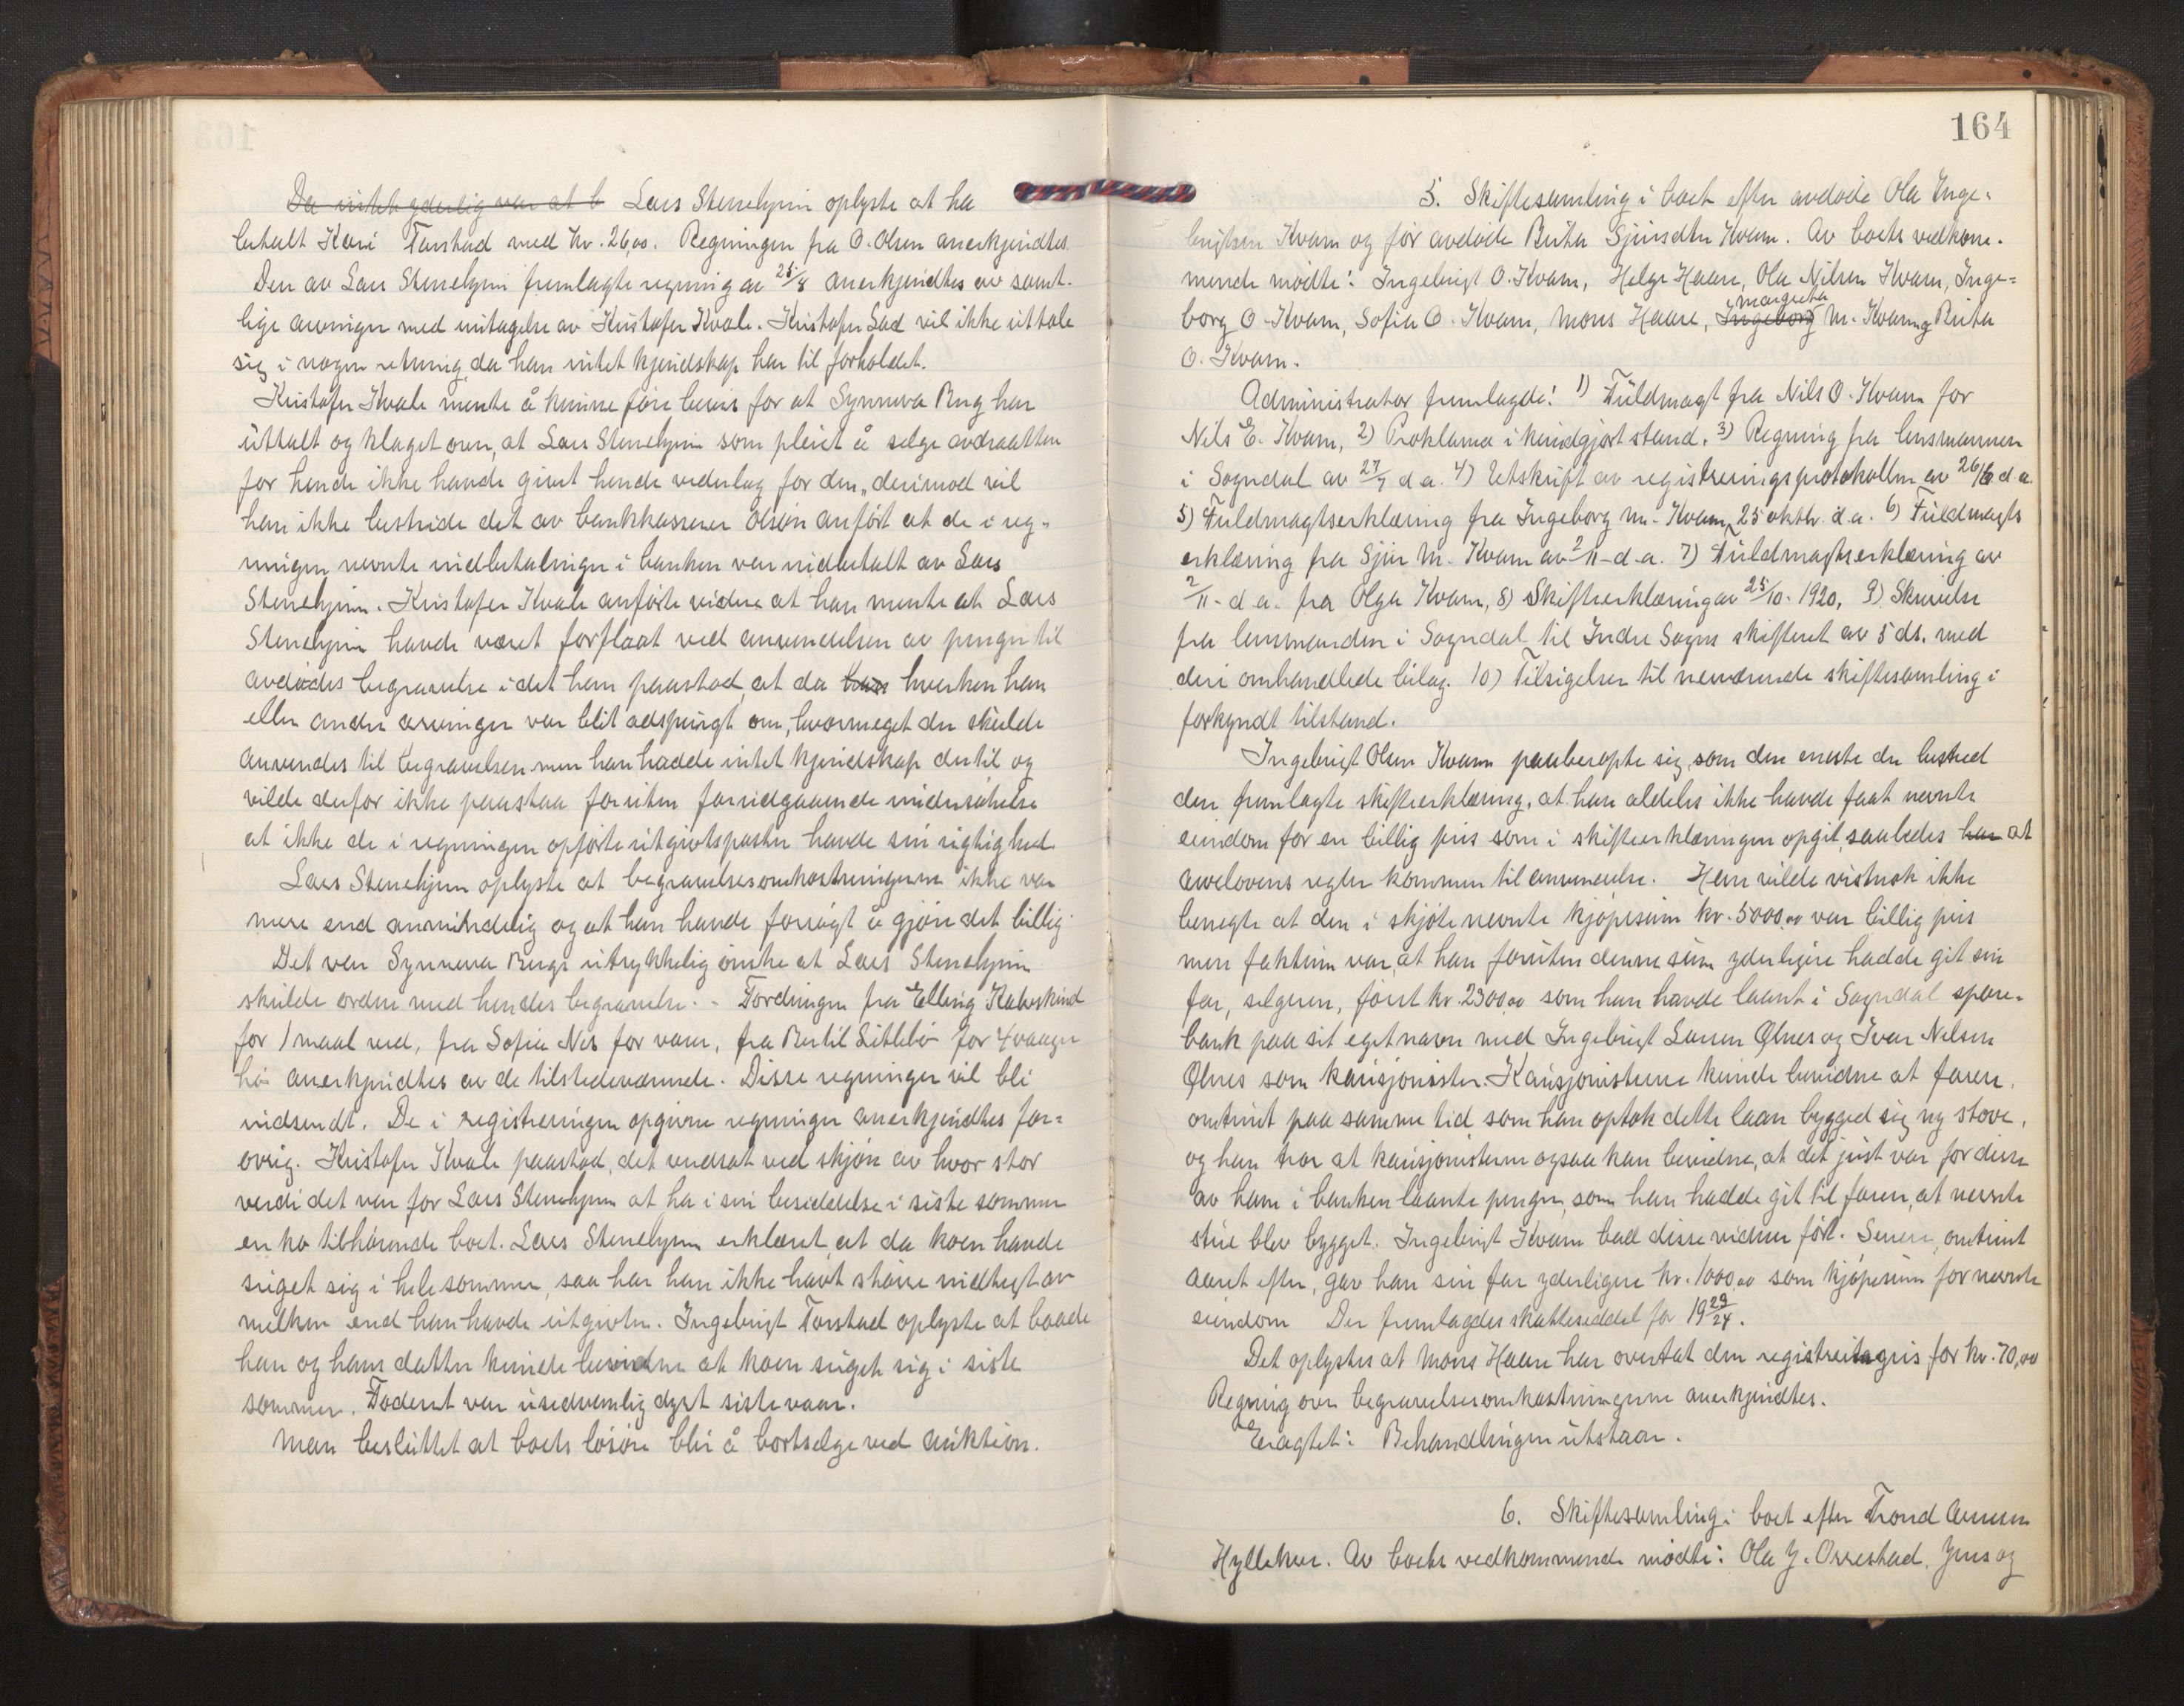 Da intet yderlig var at b Lars Stenehjem oplyste at ha
betalt Kari Tarstad med kr. 26,00. Regningen fra O. Olsen anerkjendtes.
Den av Lars Stenehjem fremlagte regning av 25/8 anerkjendtes av samt-
lige arvinger med undtagelse av Kristofer Kvale. Kristofer Lad vil ikke uttale
sig i nogen retning da han intet kjendskap har til forholdet.
Kristofer Kvale mente å kunne føre bevis for at Synneva Brug har
uttalt og klaget over, at Lars Stenehjem som pleiet å selge avdraatten
for hende ikke havde givet hende vederlag for den, derimod vil
han ikke bestride det av bankkasserer Olsen anført at de i reg-
ningen nevnte indbetalinger i banken var indbetalt av Lars
Stenehjem. Kristofer Kvale anførte videre at han mente at Lars
Stenehjem havde været forflaat ved anvendelsen av penger til
avdødes begravelse idet han paastod, at da han hverken han
eller andre arvinger var blit adspurgt om, hvormeget der skulde
anvendes til begravelsen men han hadde intet kjendskap dertil og
vilde derfor ikke paastaa foruten forutgaaende undersøkelse
at ikke de i regningen opførte utgivtsposter havde sin rigtighed.
Lars Stenehjem oplyste at begravelsesomkostningerne ikke var
mere end almindelig og at han havde forsøgt å gjøre det billig.
Det var Synneva Brugs utrykkelig ønske at Lars Stenehjem
skulde ordne med hendes begravelse. - Fordringen fra Elling Kalveskind
for 1 maal ved, fra Sofie Nes for varer, fra Bertil Litlebø for 4 vaager
høi anerkjendtes av de tilstedeværende. Disse regninger vil bli
indsendt. De i registreringen opgivne regninger anerkjendtes for-
øvrig. Kristofer Kvale paastod, det verdsat ved skjøn av hvor stor
verdi det var for Lars Stenehjem at ha i sin besiddelse i siste sommer
en ko tilhørende boet. Lars Stenehjem erklæret, at da koen havde
suget sig i hele sommer, saa har han ikke havt større indtægt av
melken end han havde utgivter. Ingebrigt Tarstad oplyste at baade
han og hans datter kunde bevidne at koen suget sig i siste
sommer. Foderet var usedvanlig dyrt siste vaar.
Man besluttet at boets løsøre blir å bortselge ved auktion.
164
5. Skiftesamling i boet efter avdøde Ola Inge-
brigtsen Kvam og før avdøde Brita Sjursdtr Kvam. Av boets vedkom-
mende mødte: Ingebrigt O. Kvam, Helge Haare, Ola Nilsen Kvam, Inge-
borg O. Kvam, Sofia O. Kvam, Mons Haare, Ingeborg Margreta M. Kvam og Brita
O. Kvam.
Administrator fremlagde: 1) Fuldmagt fra Nils O. Kvam for
Nils E. Kvam, 2) Proklama i kundgjort stand. 3) Regning fra lensmannen
i Sogndal av 27/7 d.a. 4) Utskrift av registreringsprotokollen av 26/6 d.a.
5) Fuldmagtserklæring fra Ingeborg M. Kvam 25 oktbr. d.a. 6) Fuldmagts
erklæring fra Sjur M. Kvam av 2/11 d.a. 7) Fuldmagtserklæring av
2/11 d.a. fra Olga Kvam, 8) Skifteerklæring av 25/10. 1920, 9) Skrivelse
fra lensmanden i Sogndal til Indre Sogns skifteret av 5 ds. med
deri omhandlede bilag. 10) Tilsigelser til nerværende skiftesamling i
forkyndt tilstand.
Ingebrigt Olsen Kvam paaberopte sig, som den eneste der bestred
den fremlagte skifteerklæring, at han aldeles ikke havde faat nevnte
eiendom for en billig pris som i skifteerklæringen opgit, saaledes han at
arvelovens regler kommer til anvendelse. Han vilde vistnok ikke
benegte at den i skjøte nevnte kjøpesum kr. 5000,00 var billig pris
men faktum var, at han foruten denne sum yderligere hadde git sin
far, selgeren, først kr. 2300,00 som han havde laant i Sogndal spare-
bank paa sit eget navn med Ingebrigt Larsen Ølnes og Ivar Nilsen
Ølnes som kausjonister. Kausjonisterne kunde bevidne at faren,
omtrent paa samme tid som han optok dette laan bygged sig ny stove,
og han tror at kausjonisterne ogsaa kan bevidne, at det just var for disse
av ham i banken laante penger, som han hadde git til faren, at nevnte
stue blev bygget. Ingebrigt Kvam bad disse vidner ført. Senere, omtrent
aaret efter, gav han sin far yderligere kr. 1000,00 som kjøpesum for nevnte
eiendom Der fremlagdes skatteseddel for 19 23/24.
Det oplystes at Mons Haare har overtat den registrerte gris for kr. 70,00
Regning over begravelsesomkostningerne anerkjendtes.
Eragtet: Behandlingen utstaar.
6. Skiftesamling i boet efter Trond Aunsen
Hyllekve. Av boets vedkommende mødte: Ola J. Orrestad, Jens og